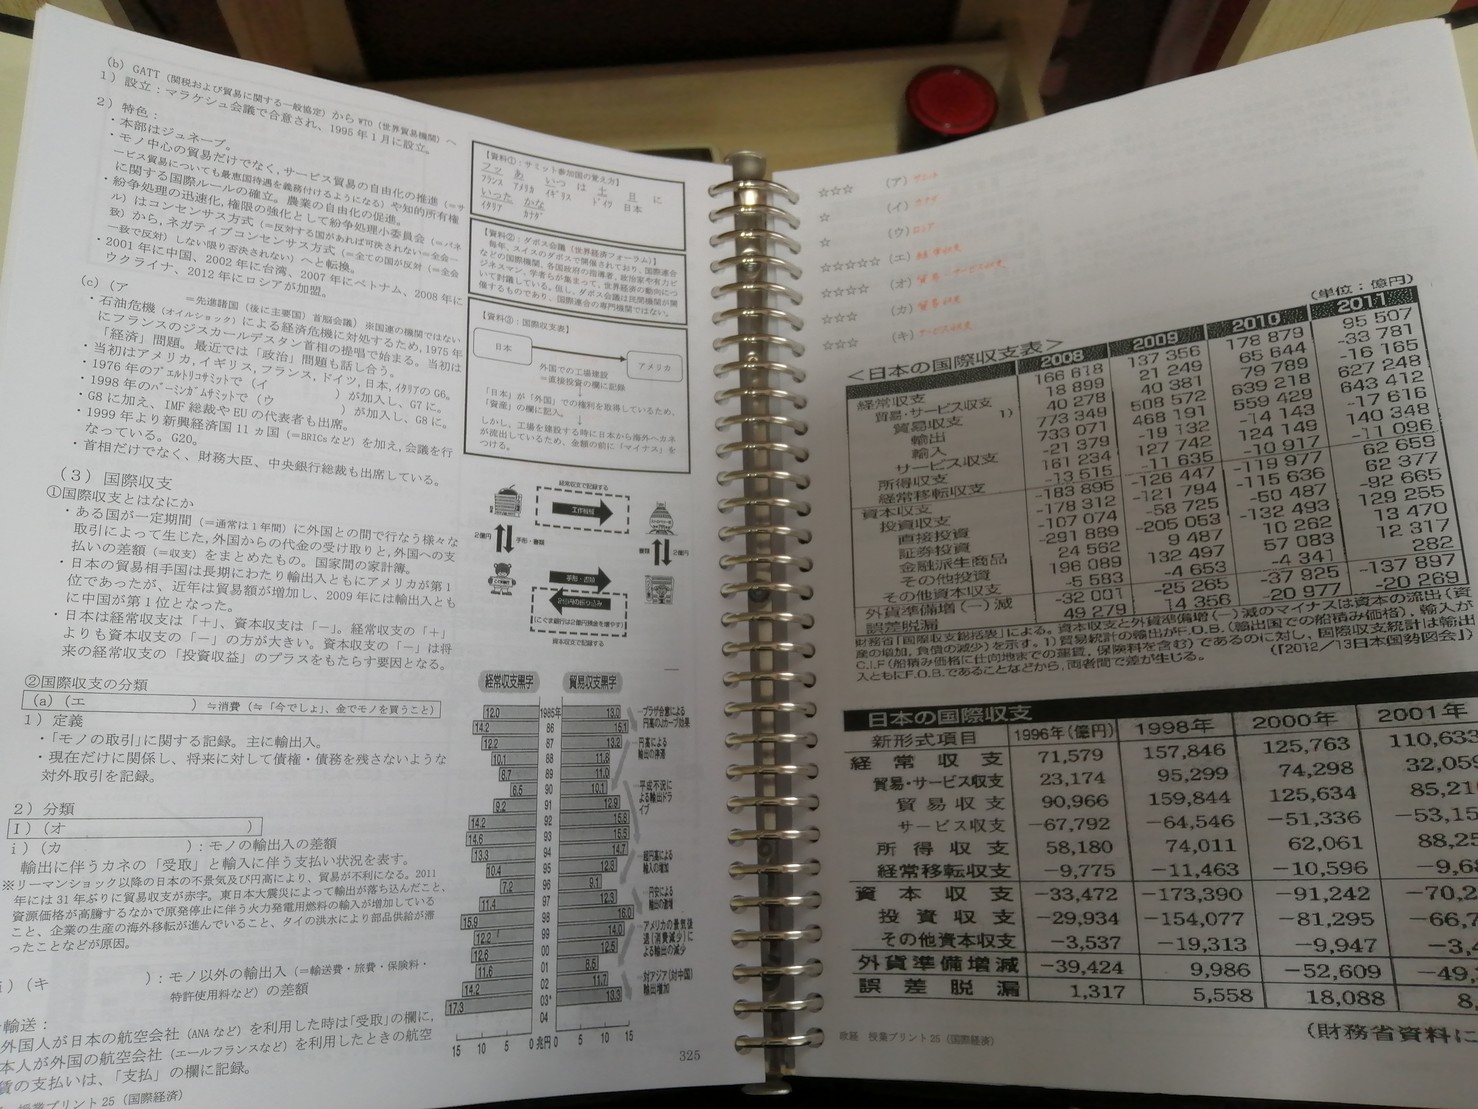 (b) GATT (関税および貿易に関する一般協定) から WTO (世界貿易機関) へ
1) 設立：マラケシュ会議で合意され、1995年1月に設立。
2) 特色：
・本部はジュネーブ。
・モノ中心の貿易だけでなく，サービス貿易の自由化の推進 (=サ
ービス貿易についても最恵国待遇を義務付けるようになる) や知的所有権
に関する国際ルールの確立。農業の自由化の促進。
・紛争処理の迅速化，権限の強化として紛争処理小委員会 (=パネ
ル) はコンセンサス方式 (=反対する国があれば可決されない=全会一
致) から，ネガティブコンセンサス方式 (=全ての国が反対 (=全会
一致で反対) しない限り否決されない) へと転換。
・2001年に中国、2002年に台湾、2007年にベトナム、2008年に
ウクライナ、2012年にロシアが加盟。
(c) (ア =先進諸国 (後に主要国) 首脳会議) ※国連の機関ではない
・石油危機 (オイルショック) による経済危機に対処するため，1975年
にフランスのジスカールデスタン首相の提唱で始まる。当初は
「経済」問題。最近では「政治」問題も話し合う。
・当初はアメリカ，イギリス，フランス，ドイツ，日本，イタリアのG6。
・1976年のプエルトリコサミットで (イ ) が加入し、G7に。
・1998年のバーミンガムサミットで (ウ ) が加入し、G8に。
・G8に加え、IMF総裁やEUの代表者も出席。
・1999年より新興経済国11カ国 (=BRICsなど) を加え，会議を行
なっている。G20。
・首相だけでなく、財務大臣、中央銀行総裁も出席している。
(3) 国際収支
①国際収支とはなにか
・ある国が一定期間 (=通常は1年間) に外国との間で行なう様々な
取引によって生じた，外国からの代金の受け取りと，外国への支
払いの差額 (=収支) をまとめたもの。国家間の家計簿。
・日本の貿易相手国は長期にわたり輸出入ともにアメリカが第1
位であったが、近年は貿易額が増加し、2009年には輸出入とも
に中国が第1位となった。
・日本は経常収支は「+」、資本収支は「－」。経常収支の「+」
よりも資本収支の「－」の方が大きい。資本収支の「－」は将
来の経常収支の「投資収益」のプラスをもたらす要因となる。
②国際収支の分類
(a) (エ ) ≒消費 (≒「今でしょ」、金でモノを買うこと)
1) 定義
・「モノの取引」に関する記録。主に輸出入。
・現在だけに関係し、将来に対して債権・債務を残さないような
対外取引を記録。
2) 分類
I) (オ )
i) (カ ) ：モノの輸出入の差額
輸出に伴うカネの「受取」と輸入に伴う支払い状況を表す。
※リーマンショック以降の日本の不景気及び円高により、貿易が不利になる。2011
年には31年ぶりに貿易収支が赤字。東日本大震災によって輸出が落ち込んだこと、
資源価格が高騰するなかで原発停止に伴う火力発電用燃料の輸入が増加している
こと、企業の生産の海外移転が進んでいること、タイの洪水により部品供給が滞
ったことなどが原因。
) (キ ) ：モノ以外の輸出入 (=輸送費・旅費・保険料・
特許使用料など) の差額
輸送：
外国人が日本の航空会社 (ANAなど) を利用した時は「受取」の欄に，
本人が外国の航空会社 (エールフランスなど) を利用したときの航空
賃の支払いは、「支払」の欄に記録。
授業プリント25 (国際経済)
【資料①：サミット参加国の覚え方】
フッ あ いつ は 土 日 に
フランス アメリカ イギリス ドイツ 日本
いった かな
イタリア カナダ
【資料②：ダボス会議 (世界経済フォーラム)】
毎年，スイスのダボスで開催されており，国際連合
などの国際機関、各国政府の指導者、政治家や有力ビ
ジネスマン、学者らが集まって、世界経済の動向につ
いて討議している。但し、ダボス会議は民間機関が開
催するものであり、国際連合の専門機関ではない。
【資料③：国際収支表】
日本
アメリカ
外国での工場建設
=直接投資の欄に記録
「日本」が「外国」での権利を取得しているため、
「資産」の欄に記入。
↓
しかし、工場を建設する時に日本から海外へカネ
が流出しているため、金額の前に「マイナス」を
つける。
経常収支で記録する
工作機械
2億円
手形・書類
書類
2億円
手形・書類
2億円の振り込み
資本収支で記録する
経常収支黒字
貿易収支黒字
12.0 1985年 13.0
14.2 86 15.1
12.2 87 13.2
10.1 88 11.8
8.7 89 11.0
6.5 90 10.1
9.2 91 12.9
14.2 92 15.8
14.6 93 15.5
13.3 94 14.7
10.4 95 12.3
7.2 96 9.1
11.4 97 12.3
15.9 98 16.0
12.2 99 14.0
12.6 00 12.5
11.6 01 8.5
14.2 02 11.7
17.3 03* 13.3
04
15 10 5 0 兆円 0 5 10 15
プラザ合意による
円高のJカーブ効果
円高による
輸出の停滞
平成不況に
よる輸出ドラ
イブ
超円高による
輸入の増加
円安による
輸出の激増
アメリカの景気後
退(消費減少)に
よる輸出の減少
対アジア(対中国)
輸出増加
325
☆☆☆ (ア) サミット
☆ (イ) カナダ
☆ (ウ) ロシア
☆☆☆☆☆ (エ) 経常収支
☆☆☆☆ (オ) 貿易・サービス収支
☆☆☆ (カ) 貿易収支
☆☆☆ (キ) サービス収支
<日本の国際収支表>
(単位：億円)
2008 2009 2010 2011
経常収支 166 618 137 356 178 879 95 507
貿易・サービス収支 18 899 21 249 65 644 -33 781
貿易収支 1) 40 278 40 381 79 789 -16 165
輸出 773 349 508 572 639 218 627 248
輸入 733 071 468 191 559 429 643 412
サービス収支 -21 379 -19 132 -14 143 -17 616
所得収支 161 234 127 742 124 149 140 348
経常移転収支 -13 515 -11 635 -10 917 -11 096
資本収支 -183 895 -126 447 -119 977 62 659
投資収支 -178 312 -121 794 -115 636 62 377
直接投資 -107 074 -58 725 -50 487 -92 665
証券投資 -291 889 -205 053 -132 493 129 255
金融派生商品 24 562 9 487 10 262 13 470
その他投資 196 089 132 497 57 083 12 317
その他資本収支 -5 583 -4 653 -4 341 282
外貨準備増(－)減 -32 001 -25 265 -37 925 -137 897
誤差脱漏 49 279 14 356 -20 977 -20 269
財務省「国際収支総括表」による。資本収支と外貨準備増(－)減のマイナスは資本の流出(資
産の増加，負債の減少)を示す。1)貿易統計の輸出がF.O.B.(輸出国での船積み価格)，輸入が
C.I.F(船積み価格に仕向地までの運賃，保険料を含む)であるのに対し，国際収支統計は輸出
入ともにF.O.B.であることなどから，両者間で差が生じる。
(『2012/13日本国勢図会』)
日本の国際収支
新形式項目 1996年(億円) 1998年 2000年 2001年
経常収支 71,579 157,846 125,763 110,633
貿易・サービス収支 23,174 95,299 74,298 32,059
貿易収支 90,966 159,844 125,634 85,21
サービス収支 −67,792 −64,546 −51,336 −53,15
所得収支 58,180 74,011 62,061 88,25
経常移転収支 −9,775 −11,463 −10,596 −9,6
資本収支 −33,472 −173,390 −91,242 −70,2
投資収支 −29,934 −154,077 −81,295 −66,7
その他資本収支 −3,537 −19,313 −9,947 −3,4
外貨準備増減 −39,424 9,986 −52,609 −49,
誤差脱漏 1,317 5,558 18,088 8,
(財務省資料に
政経 授業プリント25 (国際経済)